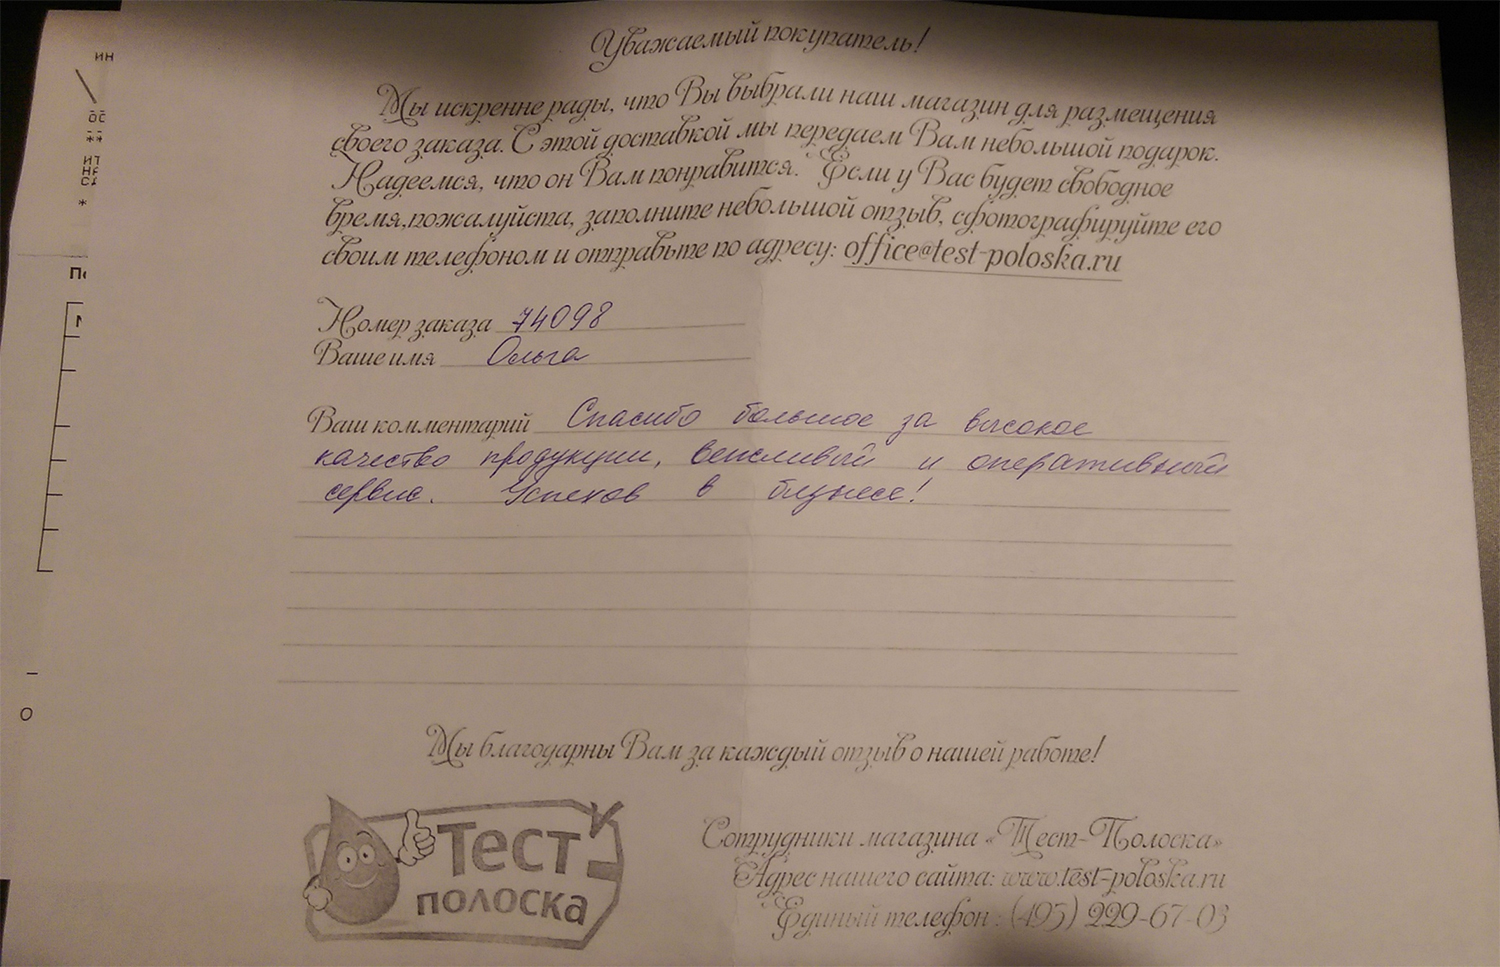 Уважаемый покупатель!
Мы искренне рады, что Вы выбрали наш магазин для размещения
своего заказа. С этой доставкой мы передаем Вам небольшой подарок.
Надеемся, что он Вам понравится. Если у Вас будет свободное
время,пожалуйста, заполните небольшой отзыв, сфотографируйте его
своим телефоном и отправьте по адресу: office@test-poloska.ru
Номер заказа 74098
Ваше имя Ольга
Ваш комментарий Спасибо большое за высокое
качество продукции, вежливый и оперативный
сервис. Успехов в бизнесе!
Мы благодарны Вам за каждый отзыв о нашей работе!
Тест
полоска
Сотрудники магазина «Тест-Полоска»
Адрес нашего сайта: www.test-poloska.ru
Единый телефон: (495) 229-67-03